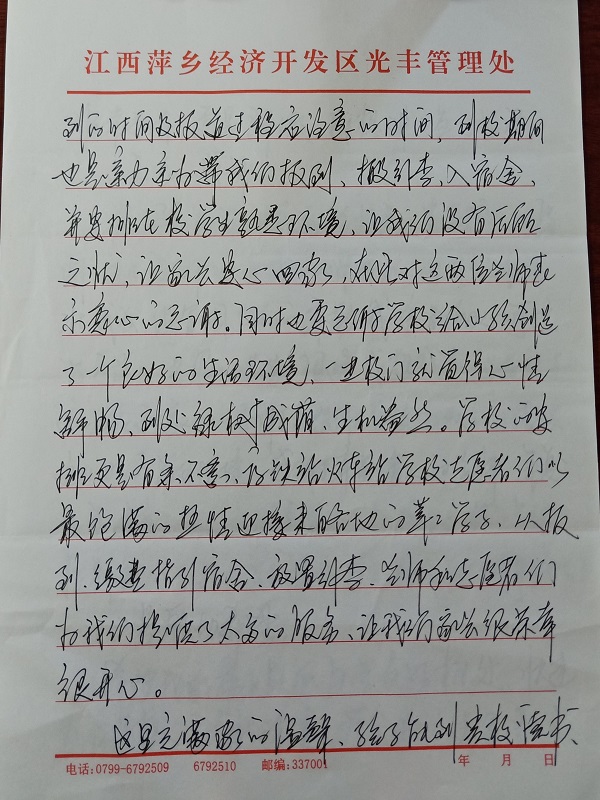 江西萍乡经济开发区光丰管理处
到的时间及报道过程应注意的时间，到校期间
也是亲力亲为带我们报到、搬行李、入宿舍、
并安排在校学生熟悉环境，让我们没有后顾
之忧，让家长安心回家，在此对这两位老师表
示衷心的感谢。同时也要感谢学校给小孩创造
了一个良好的生活环境，一进校门就觉得心情
舒畅，到处绿树成荫、生机盎然。学校的安
排更是有条不紊，高铁站火车站学校志愿者们以
最饱满的热情迎接来自各地的莘莘学子，从报
到、缴费指引宿舍、放置行李、老师和志愿者们
为我们提供了太多的服务、让我们家长很荣幸
很开心。
这里充满家的温馨、孩子能到贵校读书、
电话:0799-6792509 6792510 邮编:337001 年 月 日